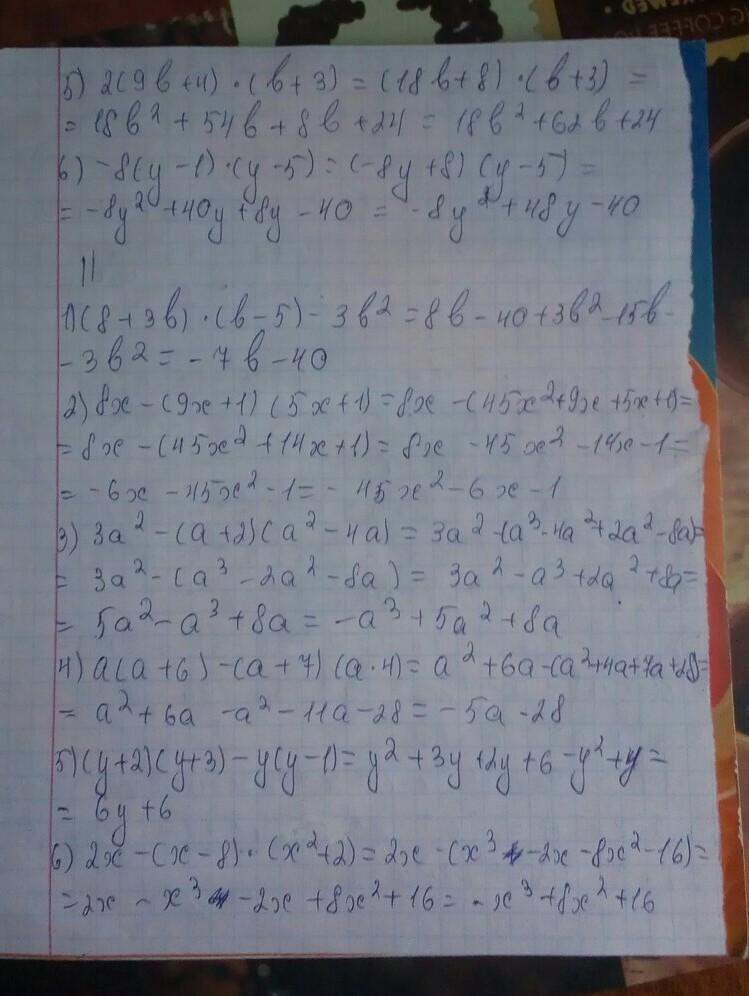 5) 2(9b+4)·(b+3) = (18b+8)·(b+3) =
= 18b² + 54b + 8b + 24 = 18b²+62b+24
6) -8(y-1)·(y-5) = (-8y+8)(y-5) =
= -8y² +40y+8y -40 = -8y²+48y-40
11
1)(8+3b)·(b-5) - 3b² = 8b-40+3b²-15b-
-3b² = -7b-40
2) 8x-(9x+1)(5x+1)=8x -(45x²+9x+5x+1)=
= 8x-(45x²+14x+1) = 8x -45x² -14x-1=
= -6x -45x²-1 = -45x²-6x-1
3) 3a²-(a+2)(a²-4a) = 3a²-(a³-4a²+2a²-8a)=
= 3a²-(a³-2a²-8a) = 3a²-a³+2a²+8a=
= 5a²-a³+8a = -a³+5a²+8a
4) a(a+6)-(a+7)(a·4)= a²+6a-(a²+4a+7a+28)=
= a²+6a -a²-11a-28 = -5a-28
5)(y+2)(y+3)-y(y-1)= y²+3y+2y+6-y²+y=
= 6y+6
6) 2x-(x-8)·(x²+2)=2x-(x³-2x-8x²-16)=
=2x - x³ -2x+8x²+16 = -x³+8x²+16